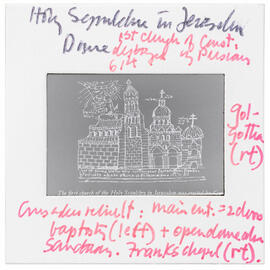 Holy Sepulchre in Jerusalem
Dome 1st church of Const.
destroyed by Persians
614
gol-
gotha
(rt)
The first church of the Holy Sepulchre in Jerusalem was
Crusaders rebuilt: main ent. = 2 doors
baptstry (left) + open dome also
Sanctuary. Franks chapel (rt).